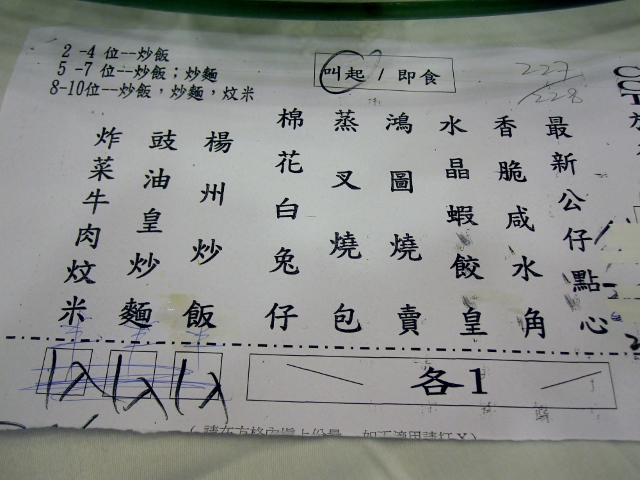 2 -4 位--炒飯
5 -7 位--炒飯；炒麵
8-10位--炒飯，炒麵，炆米
叫起 / 即食
227
228
最新公仔點心
香脆咸水角
水晶蝦餃皇
鴻圖燒賣
蒸叉燒包
棉花白兔仔
楊州炒飯
豉油皇炒麵
炸菜牛肉炆米
各1